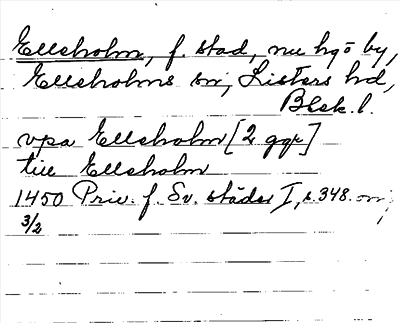 Ellsholm, f. stad, nu hgö by,
Ellsholms sn, Listers hd,
Blek. l.
vpa Ellsholm [2 ggr]
till Ellsholm
1450 Priv. f. Sv. städer I, s. 348. or;
3/2